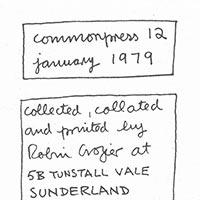 commonpress 12
january 1979
collected, collated
and printed by
Robin Crozier at
5B TUNSTALL VALE
SUNDERLAND